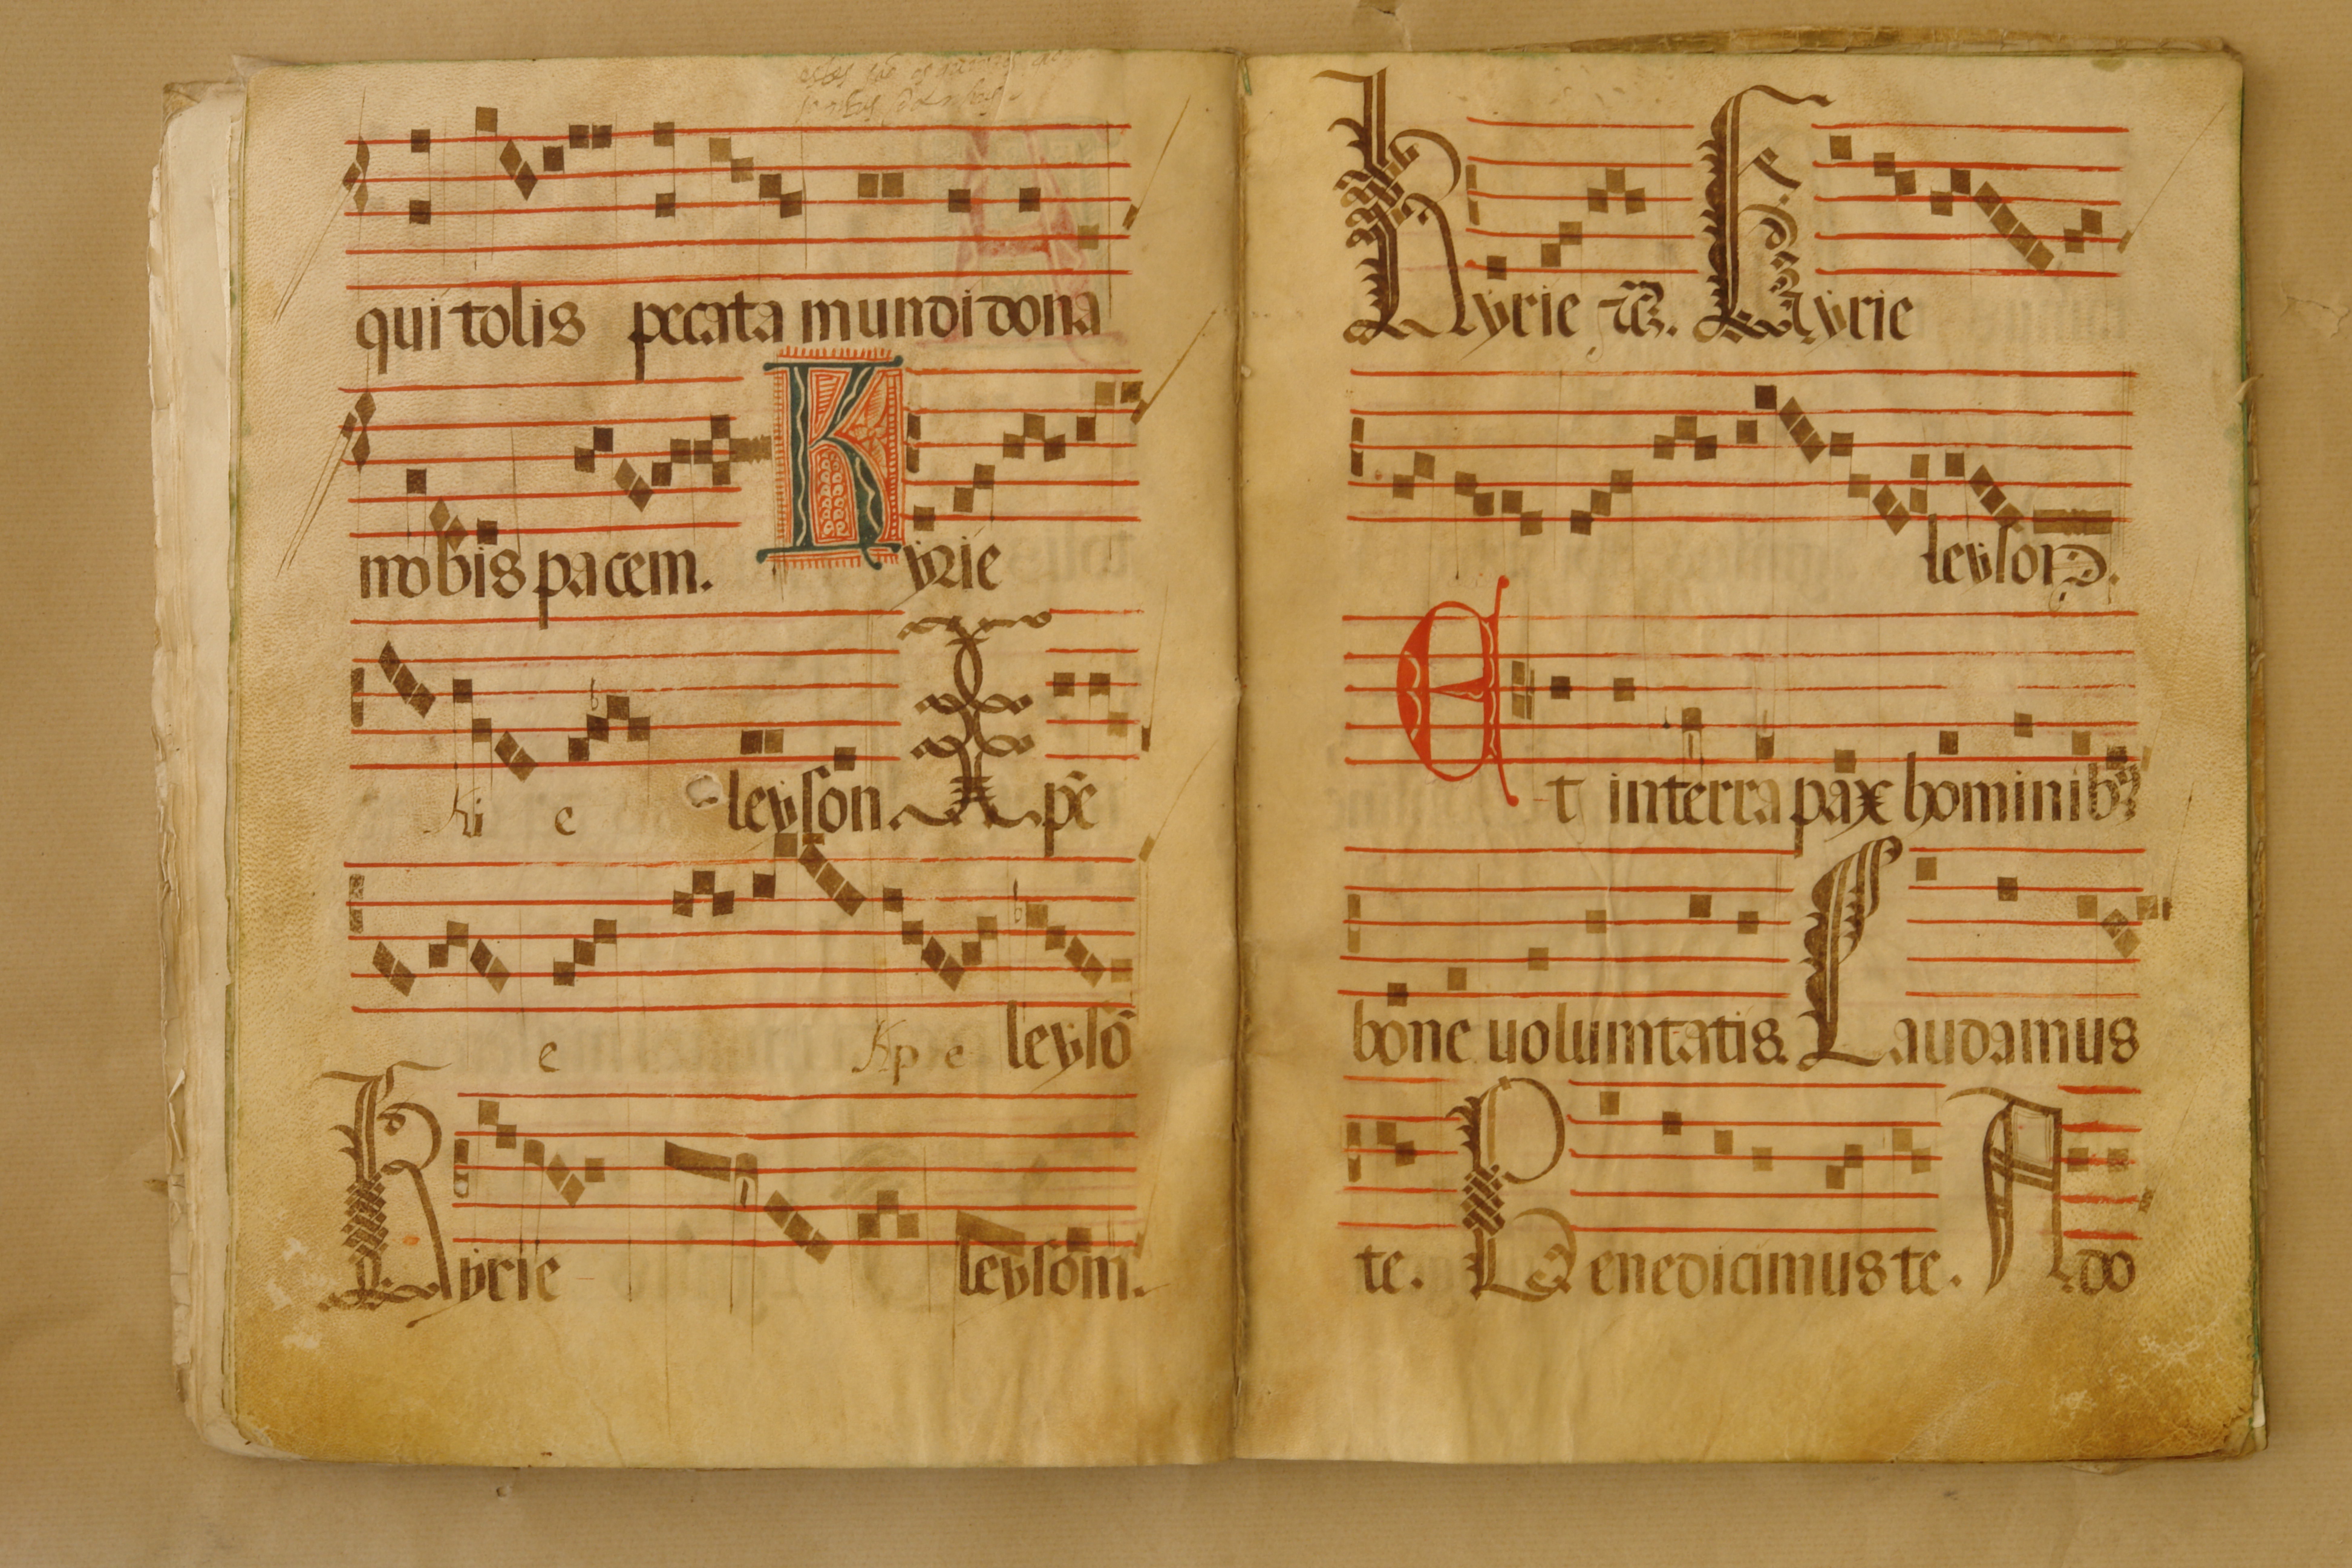 qui tolis pecata mundi dona
nobis pacem. Kyrie
Ki e leyson. Xpē
e Xpe leysō
Kyrie leysom.
Kyrie Kyrie
leyson.
Et in terra pax hominibꝰ
bone uoluntatis. Laudamus
te. Benedicimus te. Ado